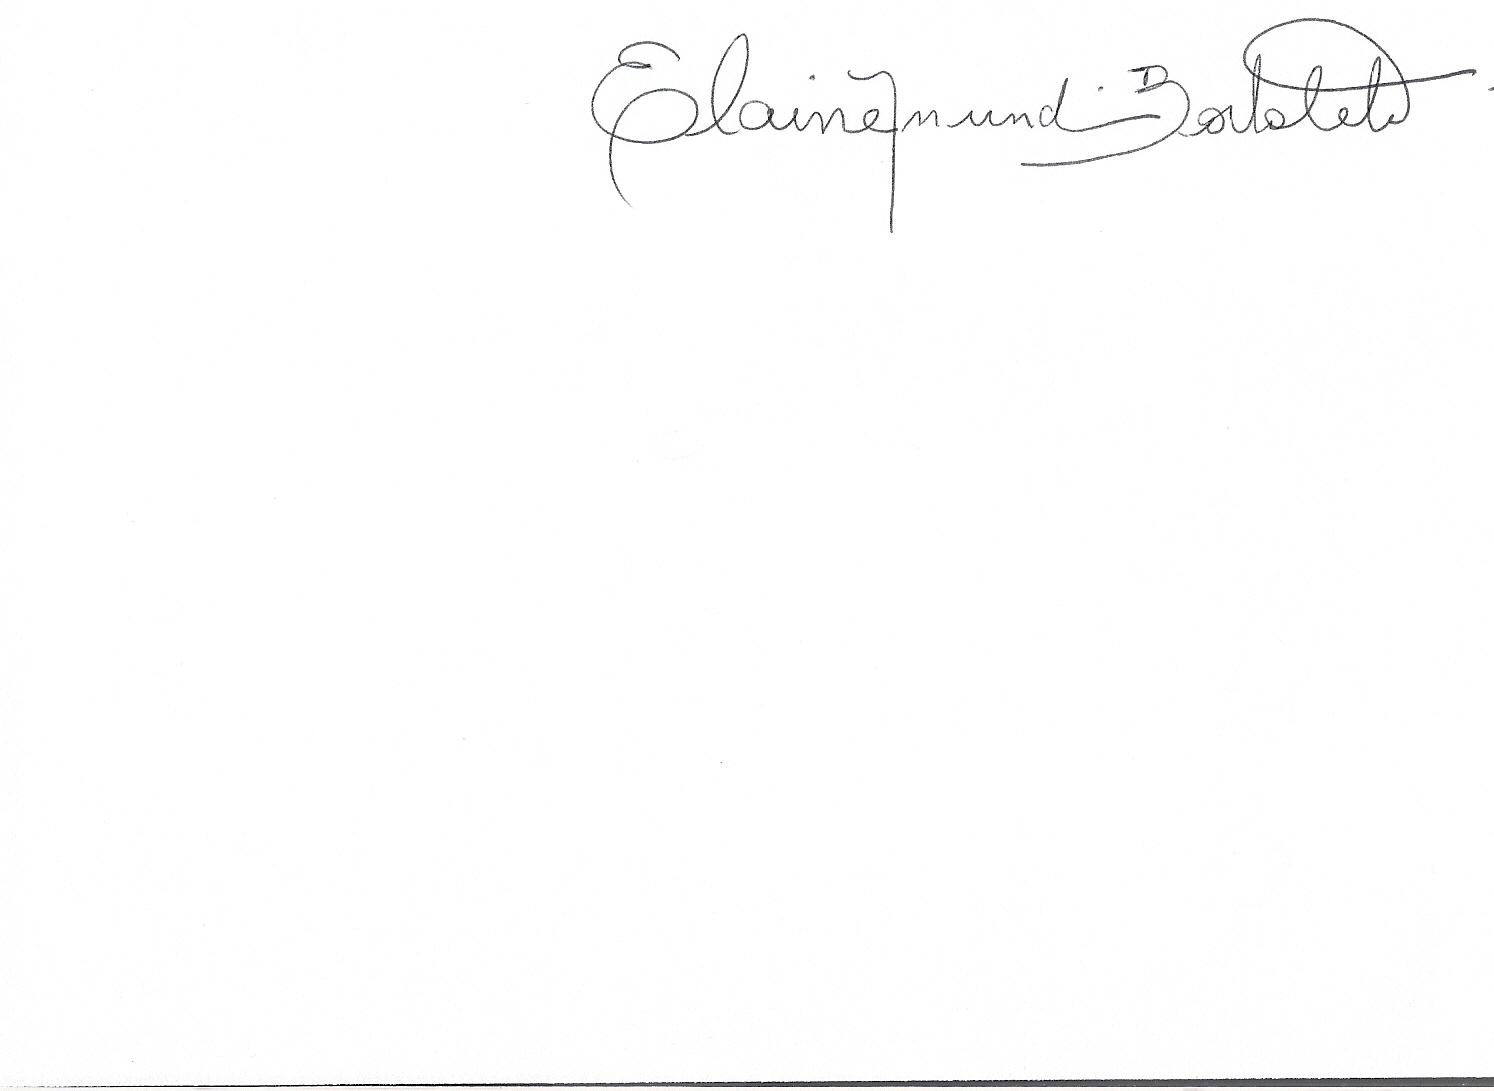 Elaine Imundi Bortoleto